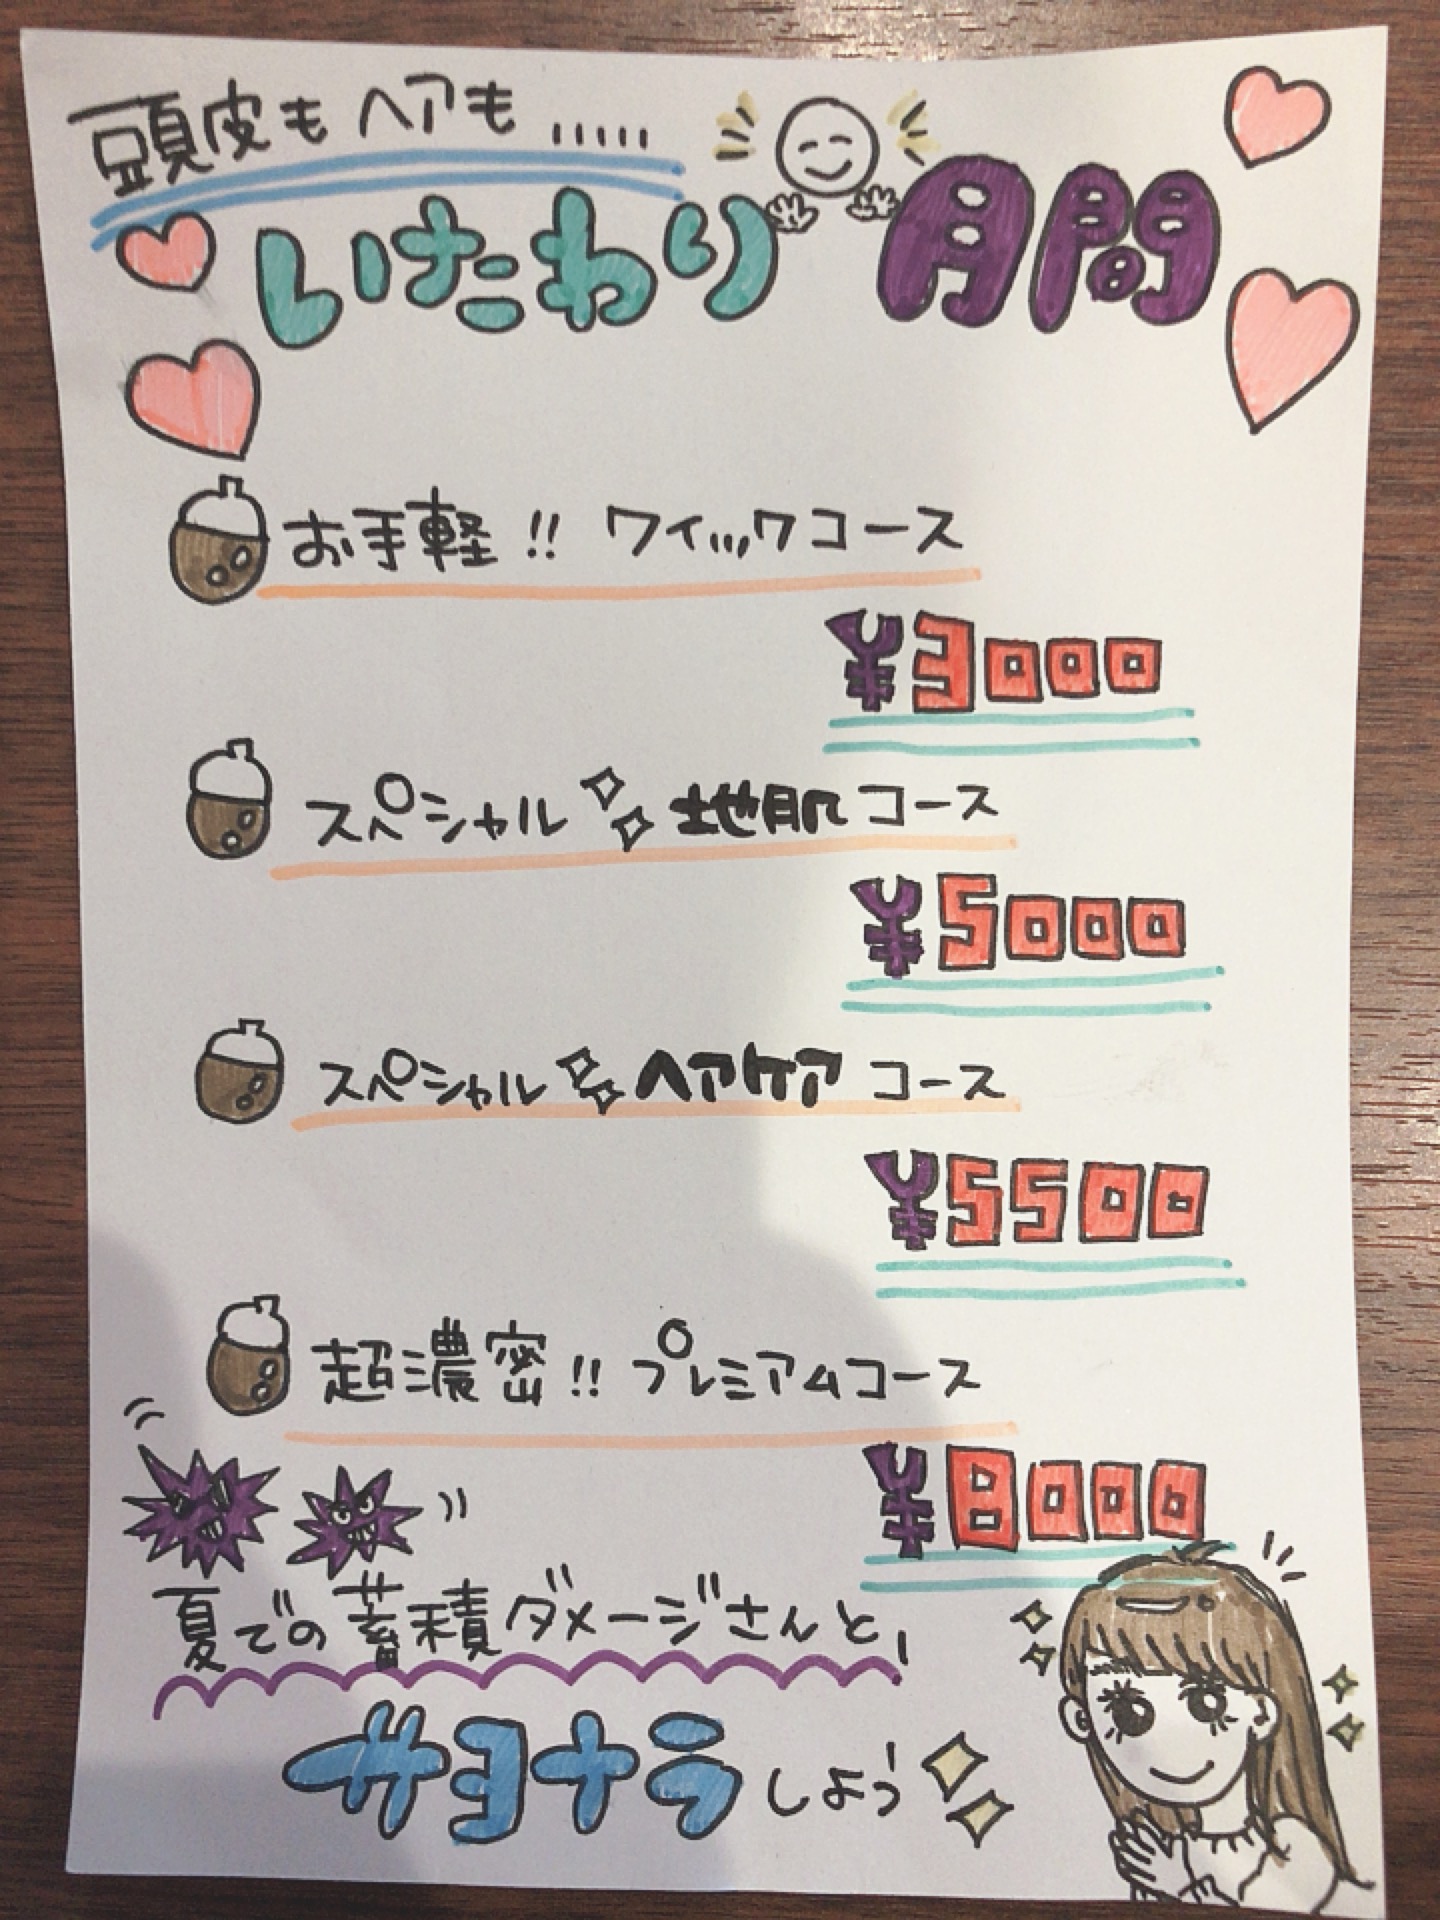 頭皮もヘアも.....
いたわり月間
お手軽!! クイックコース
¥3000
スペシャル地肌コース
¥5000
スペシャルヘアケアコース
¥5500
超濃密!! プレミアムコース
¥8000
夏での蓄積ダメージさんと、
サヨナラしよう